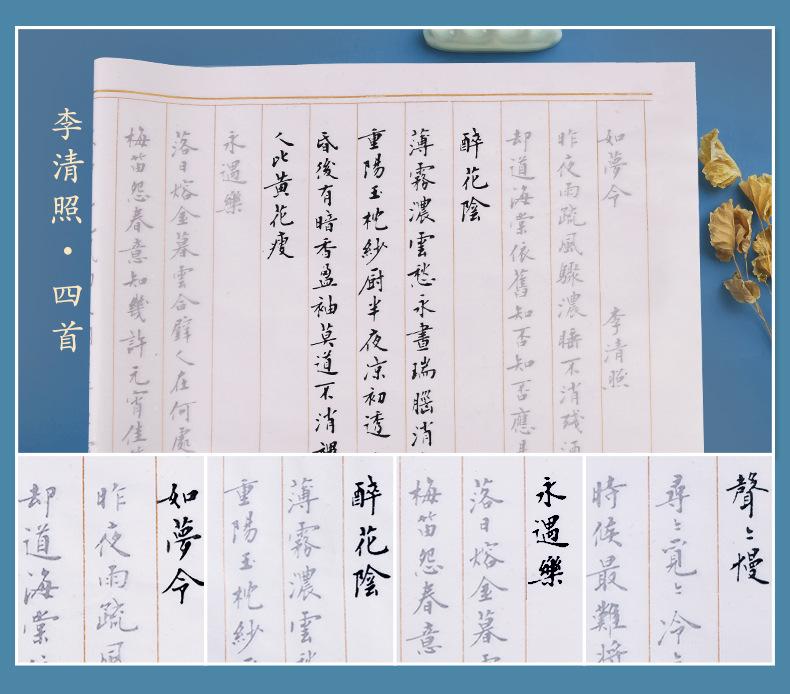 李清照·四首
如夢令 李清照
昨夜雨疏風驟濃睡不消残酒
却道海棠依舊知否知否應
醉花陰
薄霧濃雲愁永晝瑞腦消
重陽玉枕紗厨半夜凉初透
昏後有暗香盈袖莫道不消
人比黃花瘦
永遇樂
落日熔金暮雲合璧人在何處
梅笛怨春意知幾許元宵佳
如夢令
昨夜雨疏風
却道海棠
醉花陰
薄霧濃雲
重陽玉枕紗
永遇樂
落日熔金暮
梅笛怨春意
聲〻慢
尋〻覓〻冷〻
時候最難將